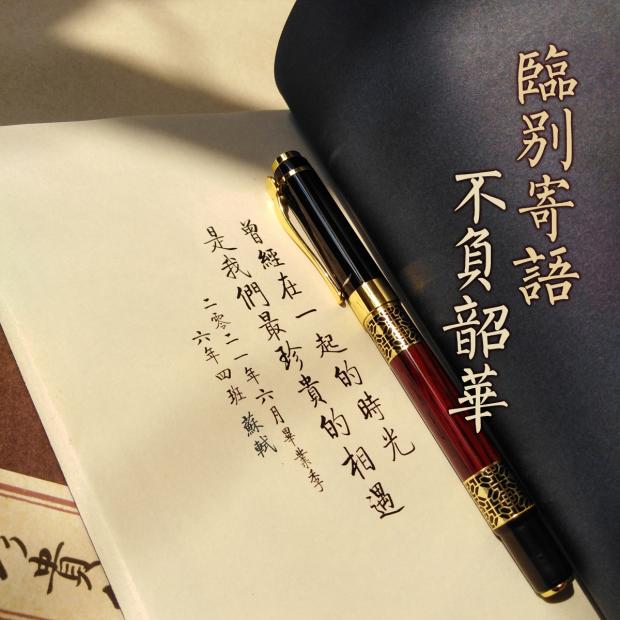 臨别寄語
不負韶華
曾經在一起的時光
是我們最珍貴的相遇
二零二一年六月畢業季
六年四班 蘇軾
貴